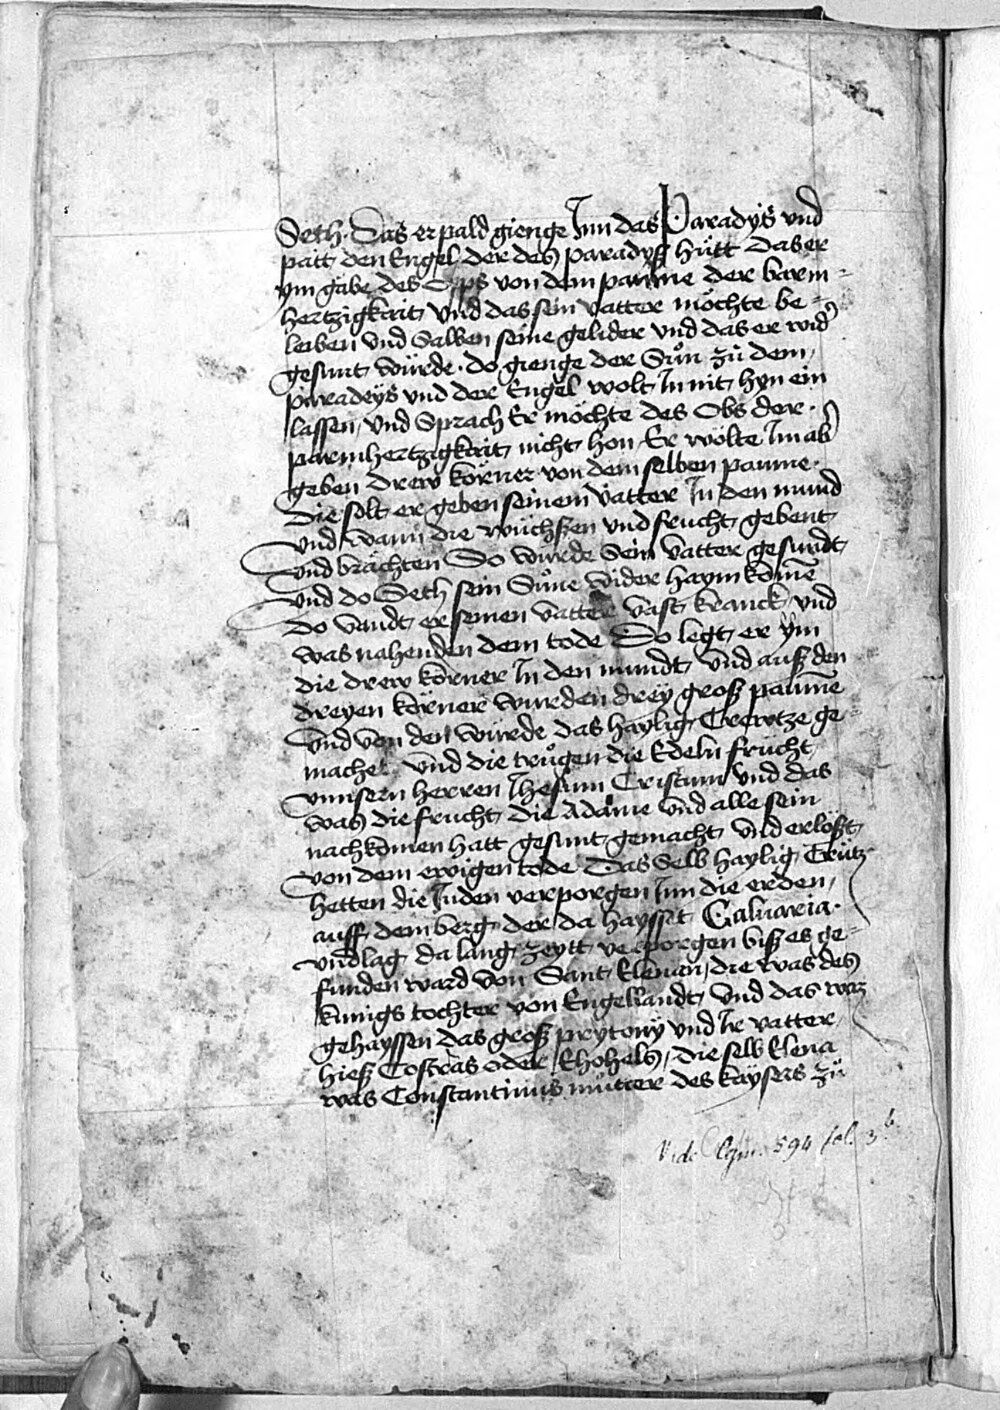 Seth. Das er pald gienge Inn das Paradys vnd
patt den Engel der des paradyß hůtt Das er
ym gäbe des Opps von dem pawme der barm=
hertzigkait vnd das sein vatter möchte be=
leiben vnd Salben seine gelider vnd das er wid
gesunt würde. do gienge der Sůn zů dem
paradeys vnd der Engel wolt In nit hyn ein
lassen, vnd Sprach Er möchte des Obs der
parmhertzigkait nicht hon Er wölte Im ab
geben drew körner von dem selben paume.
Die solt er geben seinem vatter In den mund
vnd wann die wüchßen vnd frucht gebent
vnd brächten So würde Sein vatter gesundt
vnd do Seth sein Sůne wider haym kome
Do vandt er seinen vatter vast kranck vnd
was nahenden dem tode Do legt er ym
die drew körner In den mundt vnd auß den
dreyen körner wurden drey groß paume
vnd von den würde das haylig Crewtze ge=
machet vnd die trůgen die Edeln frücht
vnnsern herren Jhesum Cristum vnd das
was die frucht die Adame vnd alle sein
nachkomen hatt gesunt gemacht vnd erlößt
von dem ewigen tode Das Selb haylig Crütz
hetten die Juden verporgen Inn die erden,
auff dem berg der da haysset Caluaria.
vnd lag da lang zeytt verporgen biß es ge=
funden ward von Sant Elenan, die was des
kunigs tochter von Engellandt vnd das waz
gehayssen das groß prytony vnd Ir vatter
hieß Costras oder Khohels, die selb Elena
was Constantinus můtter des kaysers zů
Vide Cgm. 594 fol. 3b